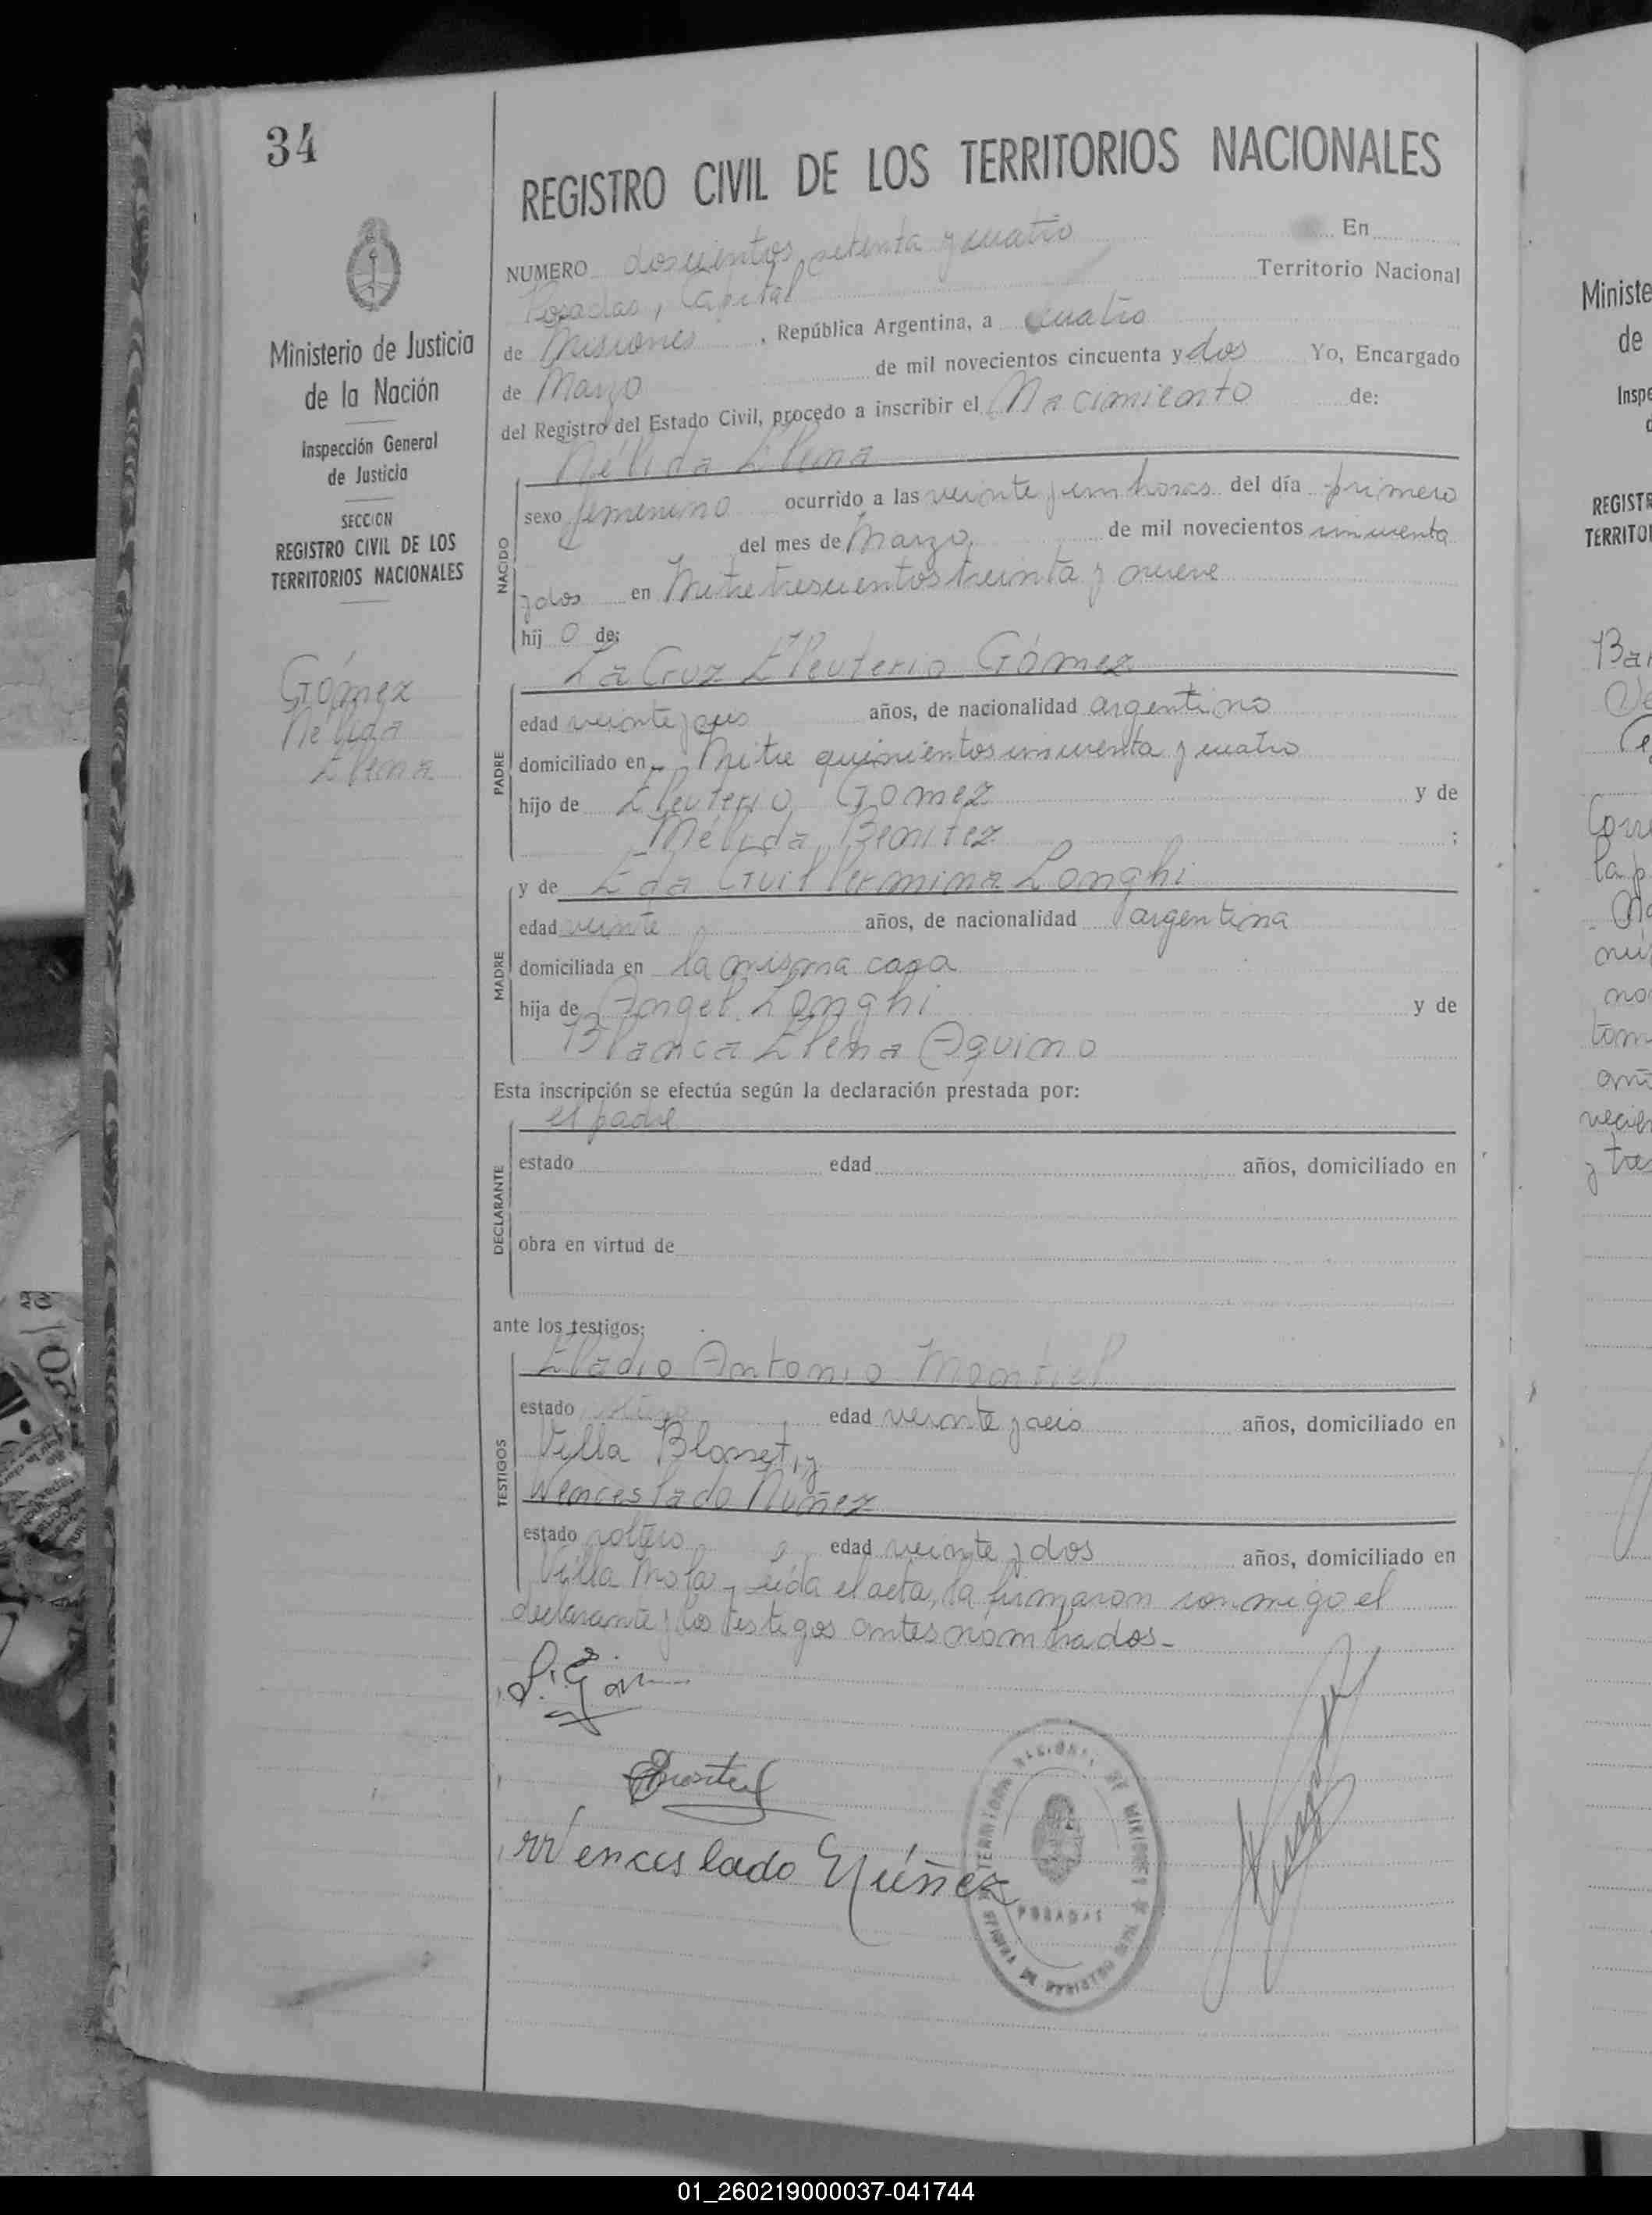 34
REGISTRO CIVIL DE LOS TERRITORIOS NACIONALES
NUMERO doscientos setenta y cuatro En
Posadas, Capital Territorio Nacional
de Misiones, República Argentina, a cuatro
de Marzo de mil novecientos cincuenta y dos Yo, Encargado
del Registro del Estado Civil, procedo a inscribir el Nacimiento de:
Nélida Elena
sexo femenino ocurrido a las veinte y un horas del día primero
del mes de Marzo de mil novecientos cincuenta
y dos en Mitre trescientos treinta y nueve
hij o de:
NACIDO
La Cruz Eleuterio Gómez
edad veinte y años, de nacionalidad argentino
domiciliado en Mitre quinientos cincuenta y cuatro
hijo de Eleuterio Gomez y de
Mélida Benitez ;
PADRE
y de Eda Guillermina Longhi
edad veinte años, de nacionalidad argentina
domiciliada en la misma casa
hija de Angel Longhi y de
Blanca Elena Aquino
MADRE
Esta inscripción se efectúa según la declaración prestada por:
el padre
estado edad años, domiciliado en
obra en virtud de
DECLARANTE
ante los testigos:
Eladio Antonio Montiel
estado soltero edad veinte y seis años, domiciliado en
Villa Blosset, y
Wenceslado Nuñez
estado soltero edad veinte y dos años, domiciliado en
Villa Mola - Leída el acta, la firmaron conmigo el
declarante y los testigos antes nombrados.-
TESTIGOS
Wenceslado Núñez
TERRITORIO NACIONAL DE MISIONES
OFICINA DE REGISTRO CIVIL
POSADAS
Ministerio de Justicia
de la Nación
Inspección General
de Justicia
SECCION
REGISTRO CIVIL DE LOS
TERRITORIOS NACIONALES
Gómez
Nélida
Elena
Ministe
de
Inspe
REGISTR
TERRITOR
01_260219000037-041744